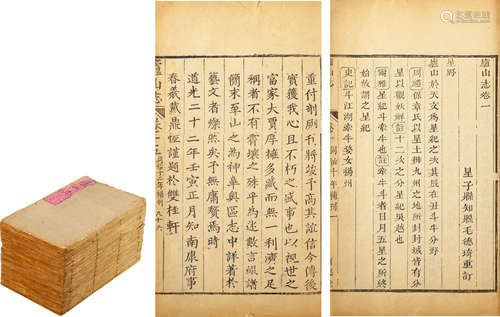 廬山志卷一
星子縣知縣毛德琦重訂
星野
廬山於天文為星紀之次其辰在丑斗牛分野
周禮保章氏以星土辨九州之地所封封域皆有分
星以觀妖祥註十二次之分星紀吳越也
爾雅星紀斗牽牛也註牽牛斗者日月五星之所終
始故謂之星紀
史記斗江湖牽牛婺女揚州
重付剞劂刊將竣予高其誼信今傳後
實獲我心且不朽之盛事也以視世之
富家大賈厚擁多藏而無一利濟之足
稱者不有霄壤之殊乎為述數言綴諸
簡末至山之為神皋奧區志中詳著於
藝文者爍然矣予無庸贅焉時
道光二十二年壬寅正月知南康府事
春羲戴鼎恆謹題於雙桂軒
廬山志